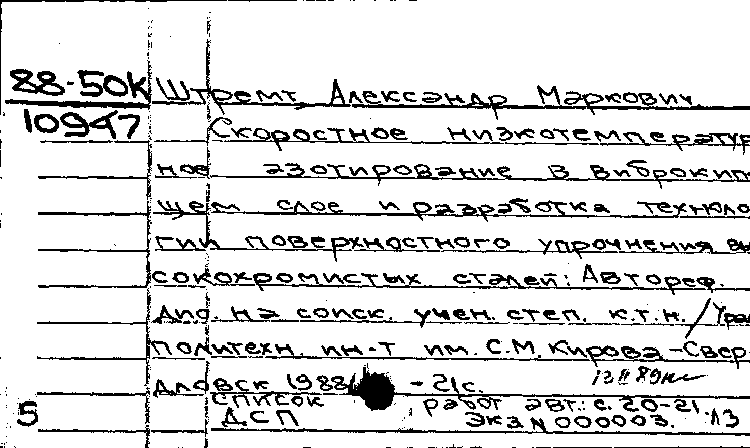 88-50К Штремт, Александр Маркович.
10947 Скоростное низкотемператур
ное азотирование в виброкип
щем слое и разработка техноло
гии поверхностного упрочнения вы
сокохромистых сталей: Автореф.
дис. на соиск. учен. степ. к.т.н. / Урал
политехн. ин-т им. С.М. Кирова -Свер
дловск 1988 - 21с.
список работ авт.: с. 20-21
5 ДСП Экз N 000003.